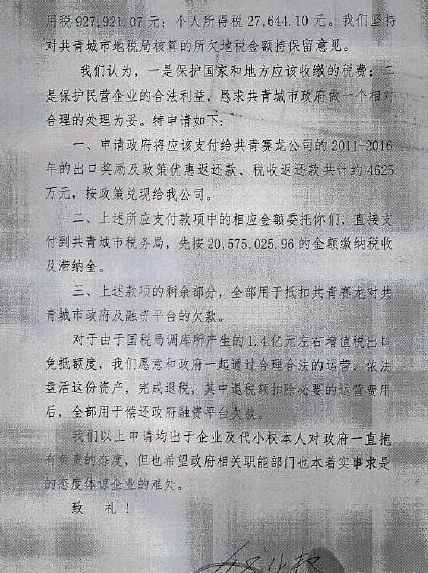 用税927,921.07元；个人所得税27,644.10元。我们坚持
对共青城市地税局核算的所欠地税金额持保留意见。
我们认为，一是保护国家和地方应该收缴的税费；二
是保护民营企业的合法利益，恳求共青城市政府做一个相对
合理的处理为妥。特申请如下：
一、申请政府将应该支付给共青赛龙公司的2011-2016
年的出口奖励及政策优惠返还款、税收返还款共计约4625
万元，按政策兑现给我公司。
二、上述所应支付款项中的相应金额委托你们，直接支
付到共青城市税务局，先按20,575,025.96的金额缴纳税收
及滞纳金。
三、上述款项的剩余部分，全部用于抵扣共青赛龙对共
青城市政府及融资平台的欠款。
对于由于国税局调库所产生的1.4亿元左右增值税出口
免抵额度，我们愿意和政府一起通过合理合法的运营，依法
盘活这份资产，完成退税，其中退税额扣除必要的运营费用
后，全部用于偿还政府融资平台欠款。
我们以上申请均出于企业及代小权本人对政府一直抱
有负责的态度，但也希望政府相关职能部门也本着实事求是
的态度体谅企业的难处。
致 礼！
代小权